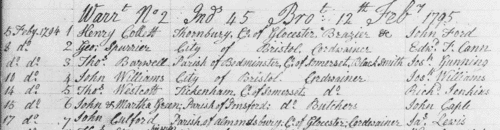 Warrt. No 2 Ind 45 Brot. 12th Feby 1795
5 Feby. 1794 1 Henry Collett Thornbury, Co. of Glocester Brazier & John Ford
8 do 2 Geo. Spurrier City of Bristol Cordwainer Edwd. T. Cann
do do 3 Thos. Barwell Parish of Bedminster, C. of Somerset, Black Smith Jos. Gunning
10 do 4 John Williams City of Bristol Cordwainer Jos. Williams
14 do 5 Thos. Westcott Tickenham, C. of Somerset do Richd. Jenkins
15 do 6 John & Martha Green, Parish of do Butchers John Caple
17 do 7 John Parish of almondsbury, C. of Glocester, Cordwainer Jas. Lewis